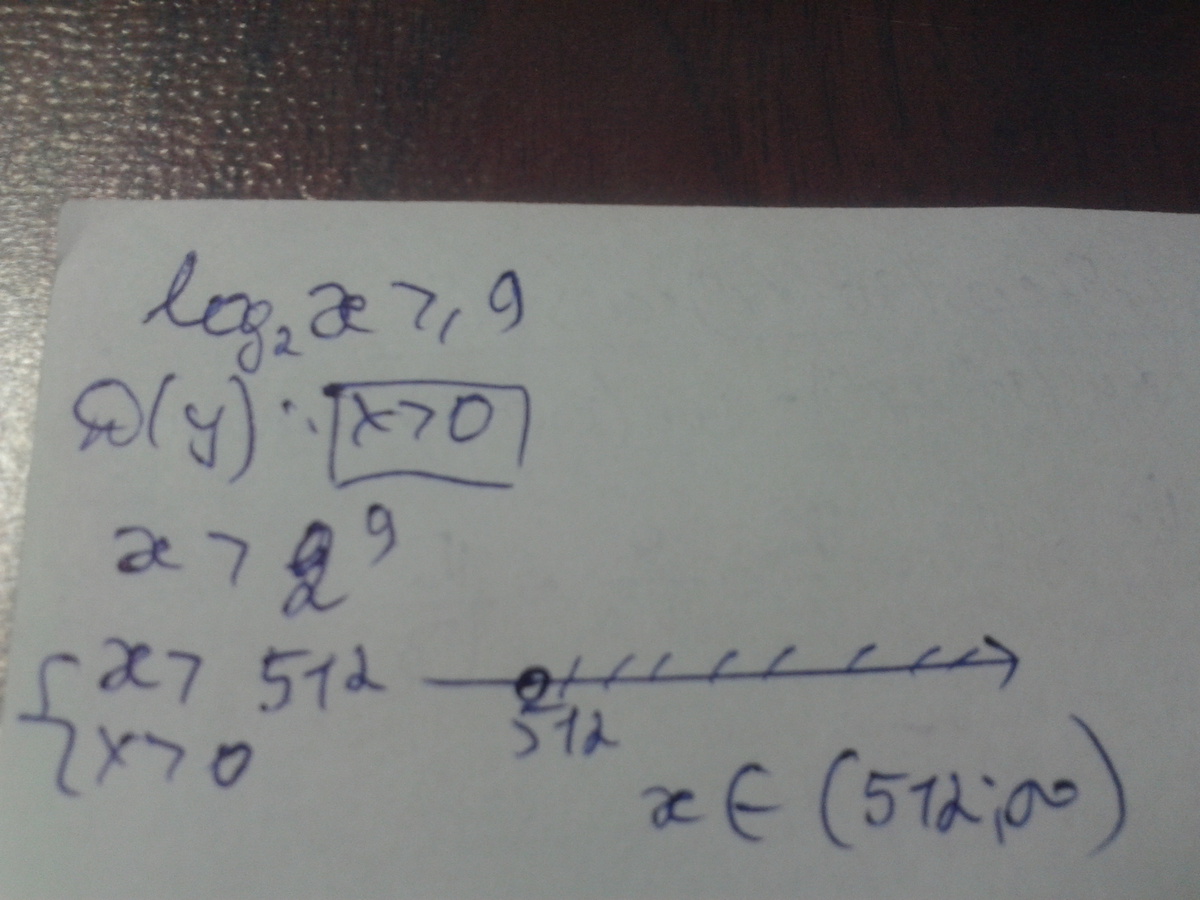 log₂ x ⩾ 9
D(y): x>0
x > 2⁹
{ x > 512
512
{ x > 0
x ∈ (512; ∞)